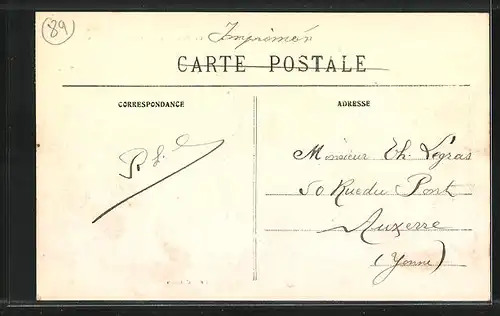 89
Imprimé
CARTE POSTALE
CORRESPONDANCE
ADRESSE
Monsieur Th. Legras
50 Rue du Pont
Auxerre
(Yonne)